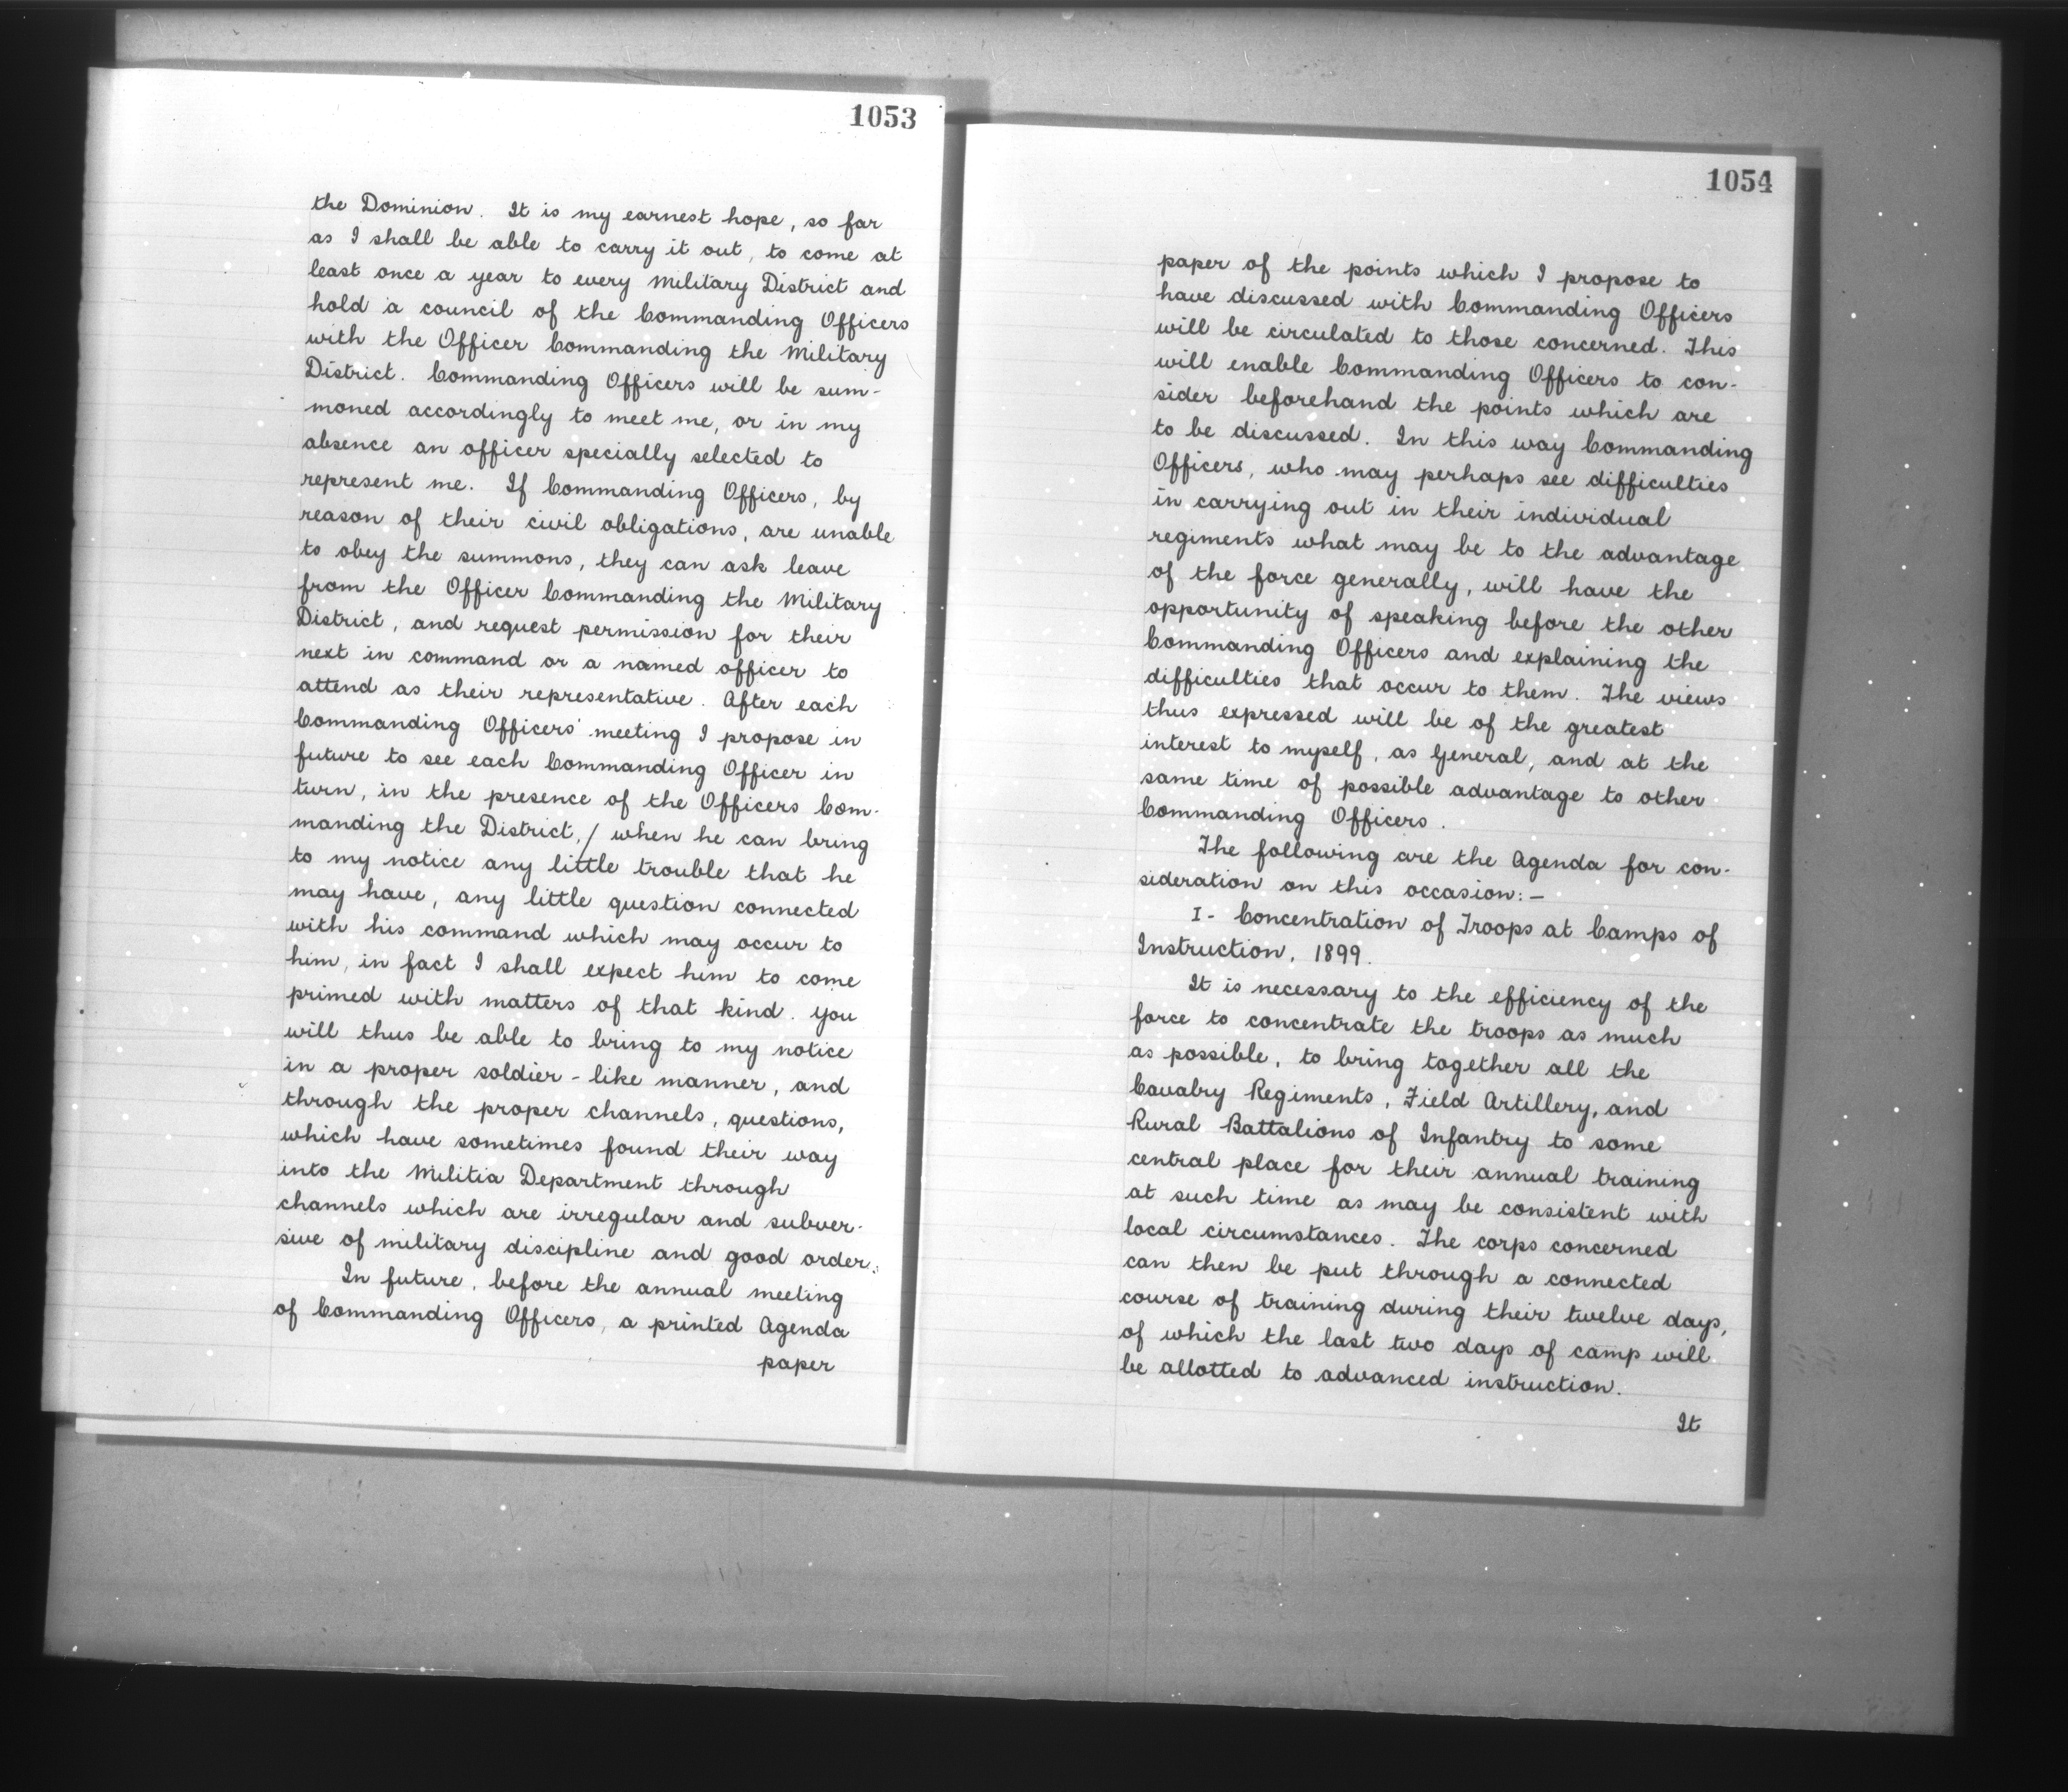 1053
the Dominion. It is my earnest hope, so far
as I shall be able to carry it out, to come at
least once a year to every Military District and
hold a council of the Commanding Officers
with the Officer Commanding the Military
District. Commanding Officers will be sum-
moned accordingly to meet me, or in my
absence an officer specially selected to
represent me. If Commanding Officers, by
reason of their civil obligations, are unable
to obey the summons, they can ask leave
from the Officer Commanding the Military
District, and request permission for their
next in command or a named officer to
attend as their representative. After each
Commanding Officers' meeting I propose in
future to see each Commanding Officer in
turn, in the presence of the Officers Com-
manding the District,/ when he can bring
to my notice any little trouble that he
may have, any little question connected
with his command which may occur to
him, in fact I shall expect him to come
primed with matters of that kind. You
will thus be able to bring to my notice
in a proper soldier-like manner, and
through the proper channels, questions,
which have sometimes found their way
into the Militia Department through
channels which are irregular and subver-
sive of military discipline and good order.
In future, before the annual meeting
of Commanding Officers, a printed Agenda
paper
1054
paper of the points which I propose to
have discussed with Commanding Officers
will be circulated to those concerned. This
will enable Commanding Officers to con-
sider beforehand the points which are
to be discussed. In this way Commanding
Officers, who may perhaps see difficulties
in carrying out in their individual
regiments what may be to the advantage
of the force generally, will have the
opportunity of speaking before the other
Commanding Officers and explaining the
difficulties that occur to them. The views
thus expressed will be of the greatest
interest to myself, as General, and at the
same time of possible advantage to other
Commanding Officers.
The following are the Agenda for con-
sideration on this occasion:—
I- Concentration of Troops at Camps of
Instruction, 1899.
It is necessary to the efficiency of the
force to concentrate the troops as much
as possible, to bring together all the
Cavalry Regiments, Field Artillery, and
Rural Battalions of Infantry to some
central place for their annual training
at such time as may be consistent with
local circumstances. The corps concerned
can then be put through a connected
course of training during their twelve days,
of which the last two days of camp will
be allotted to advanced instruction.
It